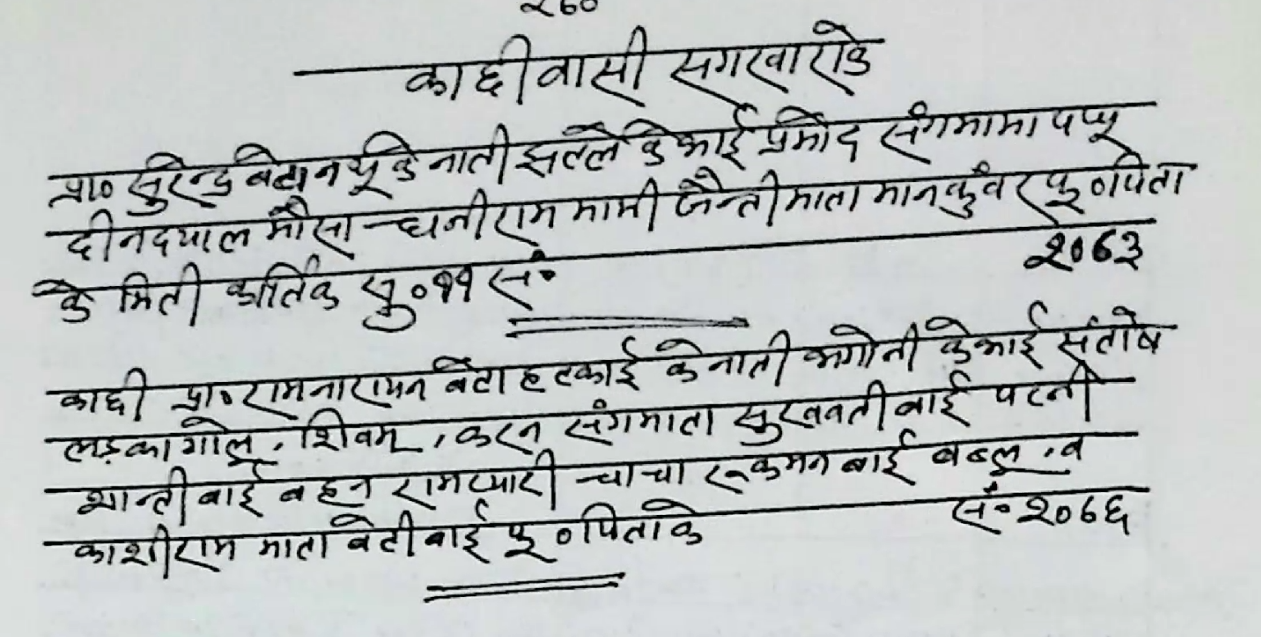 २६०
काछी वासी सगरवारा के
प्रा० सुरेन्द्र बेटा नथू के नाती झल्ले के भाई प्रमोद संग मामा पप्पू
दीनदयाल मौसा धनीराम मामी जैन्ती माता मानकुंवर फु० पिता
के मिती कार्तिक सु० ११ सं० २०६३
काछी प्रा० रामनारायन बेटा हटकाई के नाती भगोनी के भाई संतोष
लड़का गोलू, शिवम, करन संग माता सुखवती बाई पत्नी
शान्ती बाई बहन रामप्यारी चाचा रूकमन बाई बब्लू, व
काशीराम माता बेटी बाई फु० पिता के सं० २०६६